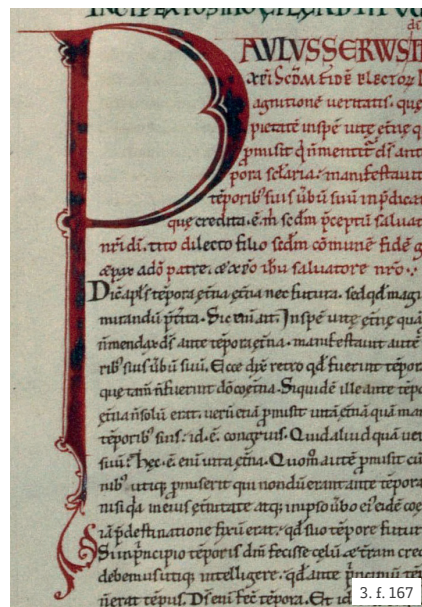 PAULUS SERVUS
xp̄i scdm̄ fidē elector
agnitionē veritatis. quę
pietatē inspē uitę ęt̄nę q
ꝓmisit q̄ n̄ mentit᷑ d̄s ant
pora sc̄laria. manifestauit
tēporib; suis ūbū suū inp̄dicat
quę credita. ē. m̄ scdm p̄ceptū saluat
nr̄i dī. tito dilecto filio scdm cōmunē fidē g
& pax a dō patre. & xp̄o ih̄u saluatore nr̄o.
Dic̄ apl̄s tēpora ęt̄na ęt̄na nec futura. sed qd̄ magi
mirandū p̄t̄ita. Sic eni̅ ait. Inspē uitę ęt̄nę quā
n̄ mendax d̄s ante tēpora ęt̄na. manifestauit autē
rib; suis ūbū suū. Ecce dix̄ retro qd̄ fuerint tēpor
que tam̄ n̄ fuerint dō coęt̄na. Siquidē ille ante tēpo
ęt̄na n̄ solū erat. uerū etiā ꝓmisit uitā ęt̄nā quā man
tēporib; suis. id. ē. congruis. Quid aliud quā uer
suū. Hęc. ē. eni̅ uita ęt̄na. Quom̄ autē ꝓmisit cū
nib; utiq; ꝓmiserit qui nondū erant ante tēpora
nisi qa in eius ęt̄nitate atq; in ipso ūbo ei᷒ eidē coę
iā p̄destinatione fixū erat. qd̄ suo tēpore futur
Si in principio tēporis dm̄ fecisse cęlū & t̄ram cred
debemus utiq; intelligere. qd̄ ante principiū tēp
n̄ erat tēpus. D̄s eni̅ fec̄ tēpora. Et id
3. f. 167